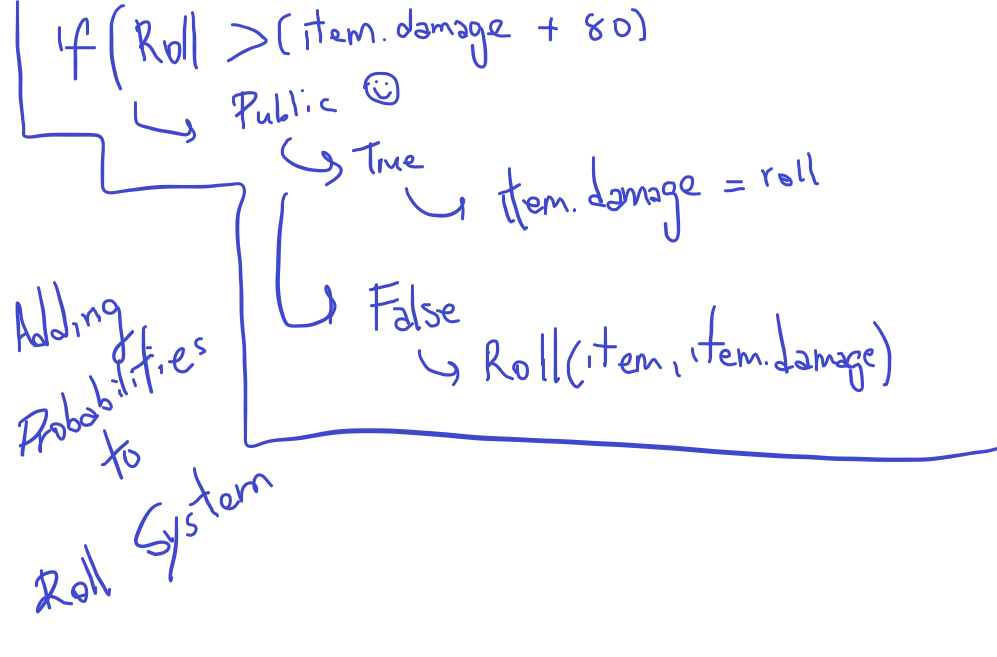 If (Roll > (item.damage + 80)
Public
True
Item.damage = roll
False
Roll(item, item.damage)
Adding
Probabilities
to
Roll System